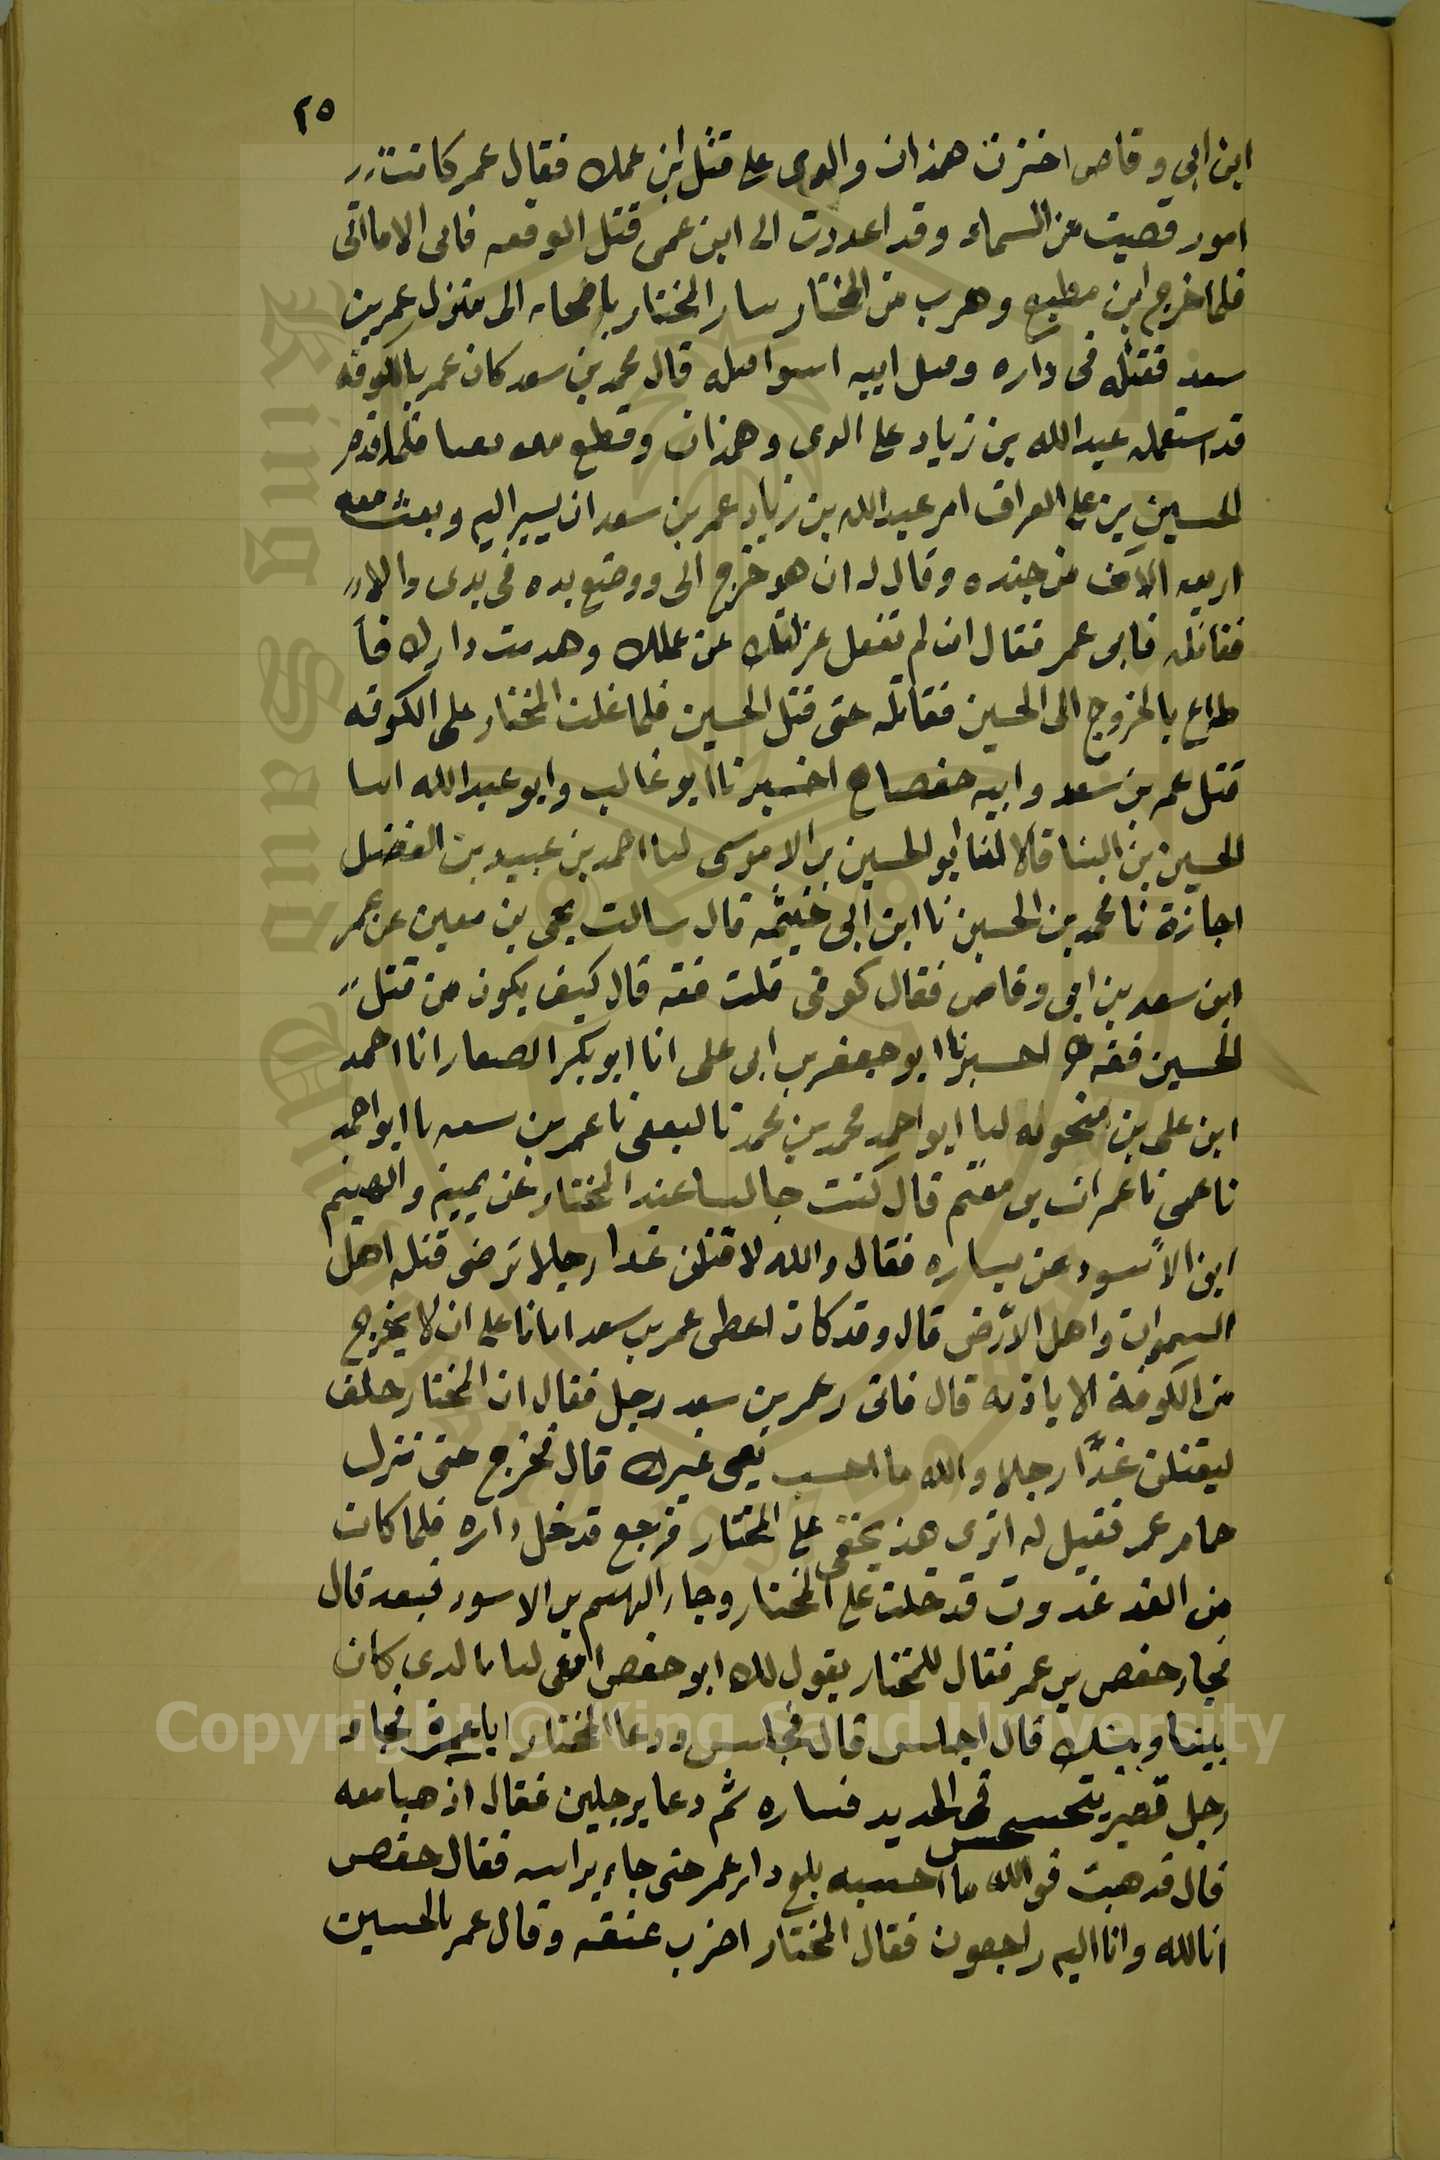 ٢٥
ابن ابى وقاص اخترت همذان والرى على قتل ابن عمك فقال عمر كانت
امور قضيت من السماء وقد اعذرت الى ابن عمى قبل الوقعه فابى الا ما اتى
فلما خرج ابن مطيع وهرب من المختار سار المختار باصحابه الى منزل عمر بن
سعد فقتله فى داره وقتل ابنه اسوا قتله قال محمد بن سعد كان عمر بالكوفه
قد استعمله عبيدالله بن زياد على الرى وهمذان وقطع معه بعثا فلما قدم
الحسين بن على العراق امر عبيدالله بن زياد عمر بن سعد ان يسير اليه وبعث معه
اربعه الاف من جنده وقال له ان هو خرج الى ووضع يده فى يدى والا
فقاتله فابى عمر فقال ان لم تفعل عزلتك عن عملك وهدمت دارك فا
طاع بالخروج الى الحسين فقاتله حتى قتل الحسين فلما غلب المختار على الكوفه
قتل عمر بن سعد وابنه حفصا ح اخبرنا ابو غالب وابو عبدالله ابنا
الحسين بن البنا قالا ابو الحسين بن الابنوسى انا احمد بن عبيد بن الفضل
اجازة نا محمد بن الحسين نا ابن ابى خيثمه قال سالت يحيى بن معين عن عمر
ابن سعد بن ابى وقاص فقال كوفى قلت ثقه قال كيف يكون من قتل
الحسين ثقه اخبرنا ابو جعفر بن ابى على انا ابو بكر الصفار انا احمد
ابن على بن منجويه انا ابو احمد محمد بن محمد نا الثقفى نا عمر بن سعد نا ابو احمد
نا عمى نا عمران بن ميثم قال كنت جالسا عند المختار عن يمينه والهيثم
ابن الاسود عن يساره فقال والله لاقتلن غدا رجلا ترضى قتله اهل
السموات واهل الارض قال وقد كان اعطى عمر بن سعد امانا على ان لا يخرج
من الكوفة الا باذنه قال فاتى عمر بن سعد رجل فقال ان المختار حلف
ليقتلن غدًا رجلا والله ما احسبه يعنى غيرك قال فخرج حتى نزل
حمام عمر فقيل له اترى هذ يخفى على المختار فرجع فدخل داره فلما كان
من الغد غدوت فدخلت على المختار وجاء الهيثم بن الاسود فقعد قال
فجاء حفص بن عمر فقال للمختار يقول لك ابو حفص اتفى لنا بالذى كان
بيننا وبينك قال اجلس قال فجلس ودعا المختار ابا عمرة فجاء
رجل قصير يتخشخش فى الحديد فساره ثم دعا برجلين فقال اذهبا معه
قال فذهب فوالله ما احسبه بلغ دار عمر حتى جاء براسه فقال حفص
انا لله وانا اليه راجعون فقال المختار اضرب عنقه وقال عمر بالحسين